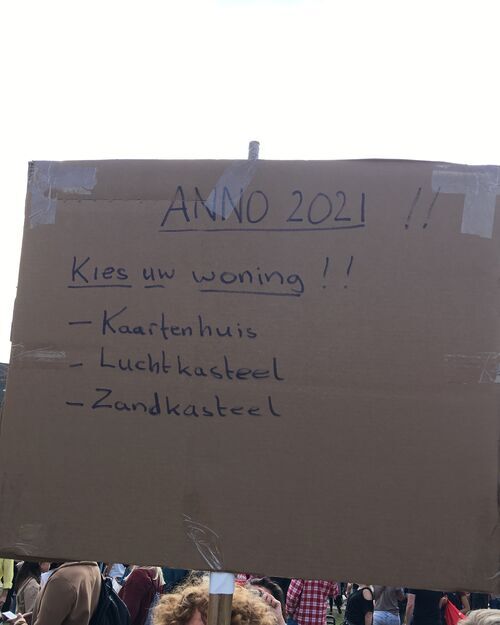 ANNO 2021 !!
Kies uw woning !!
- Kaartenhuis
- Luchtkasteel
- Zandkasteel